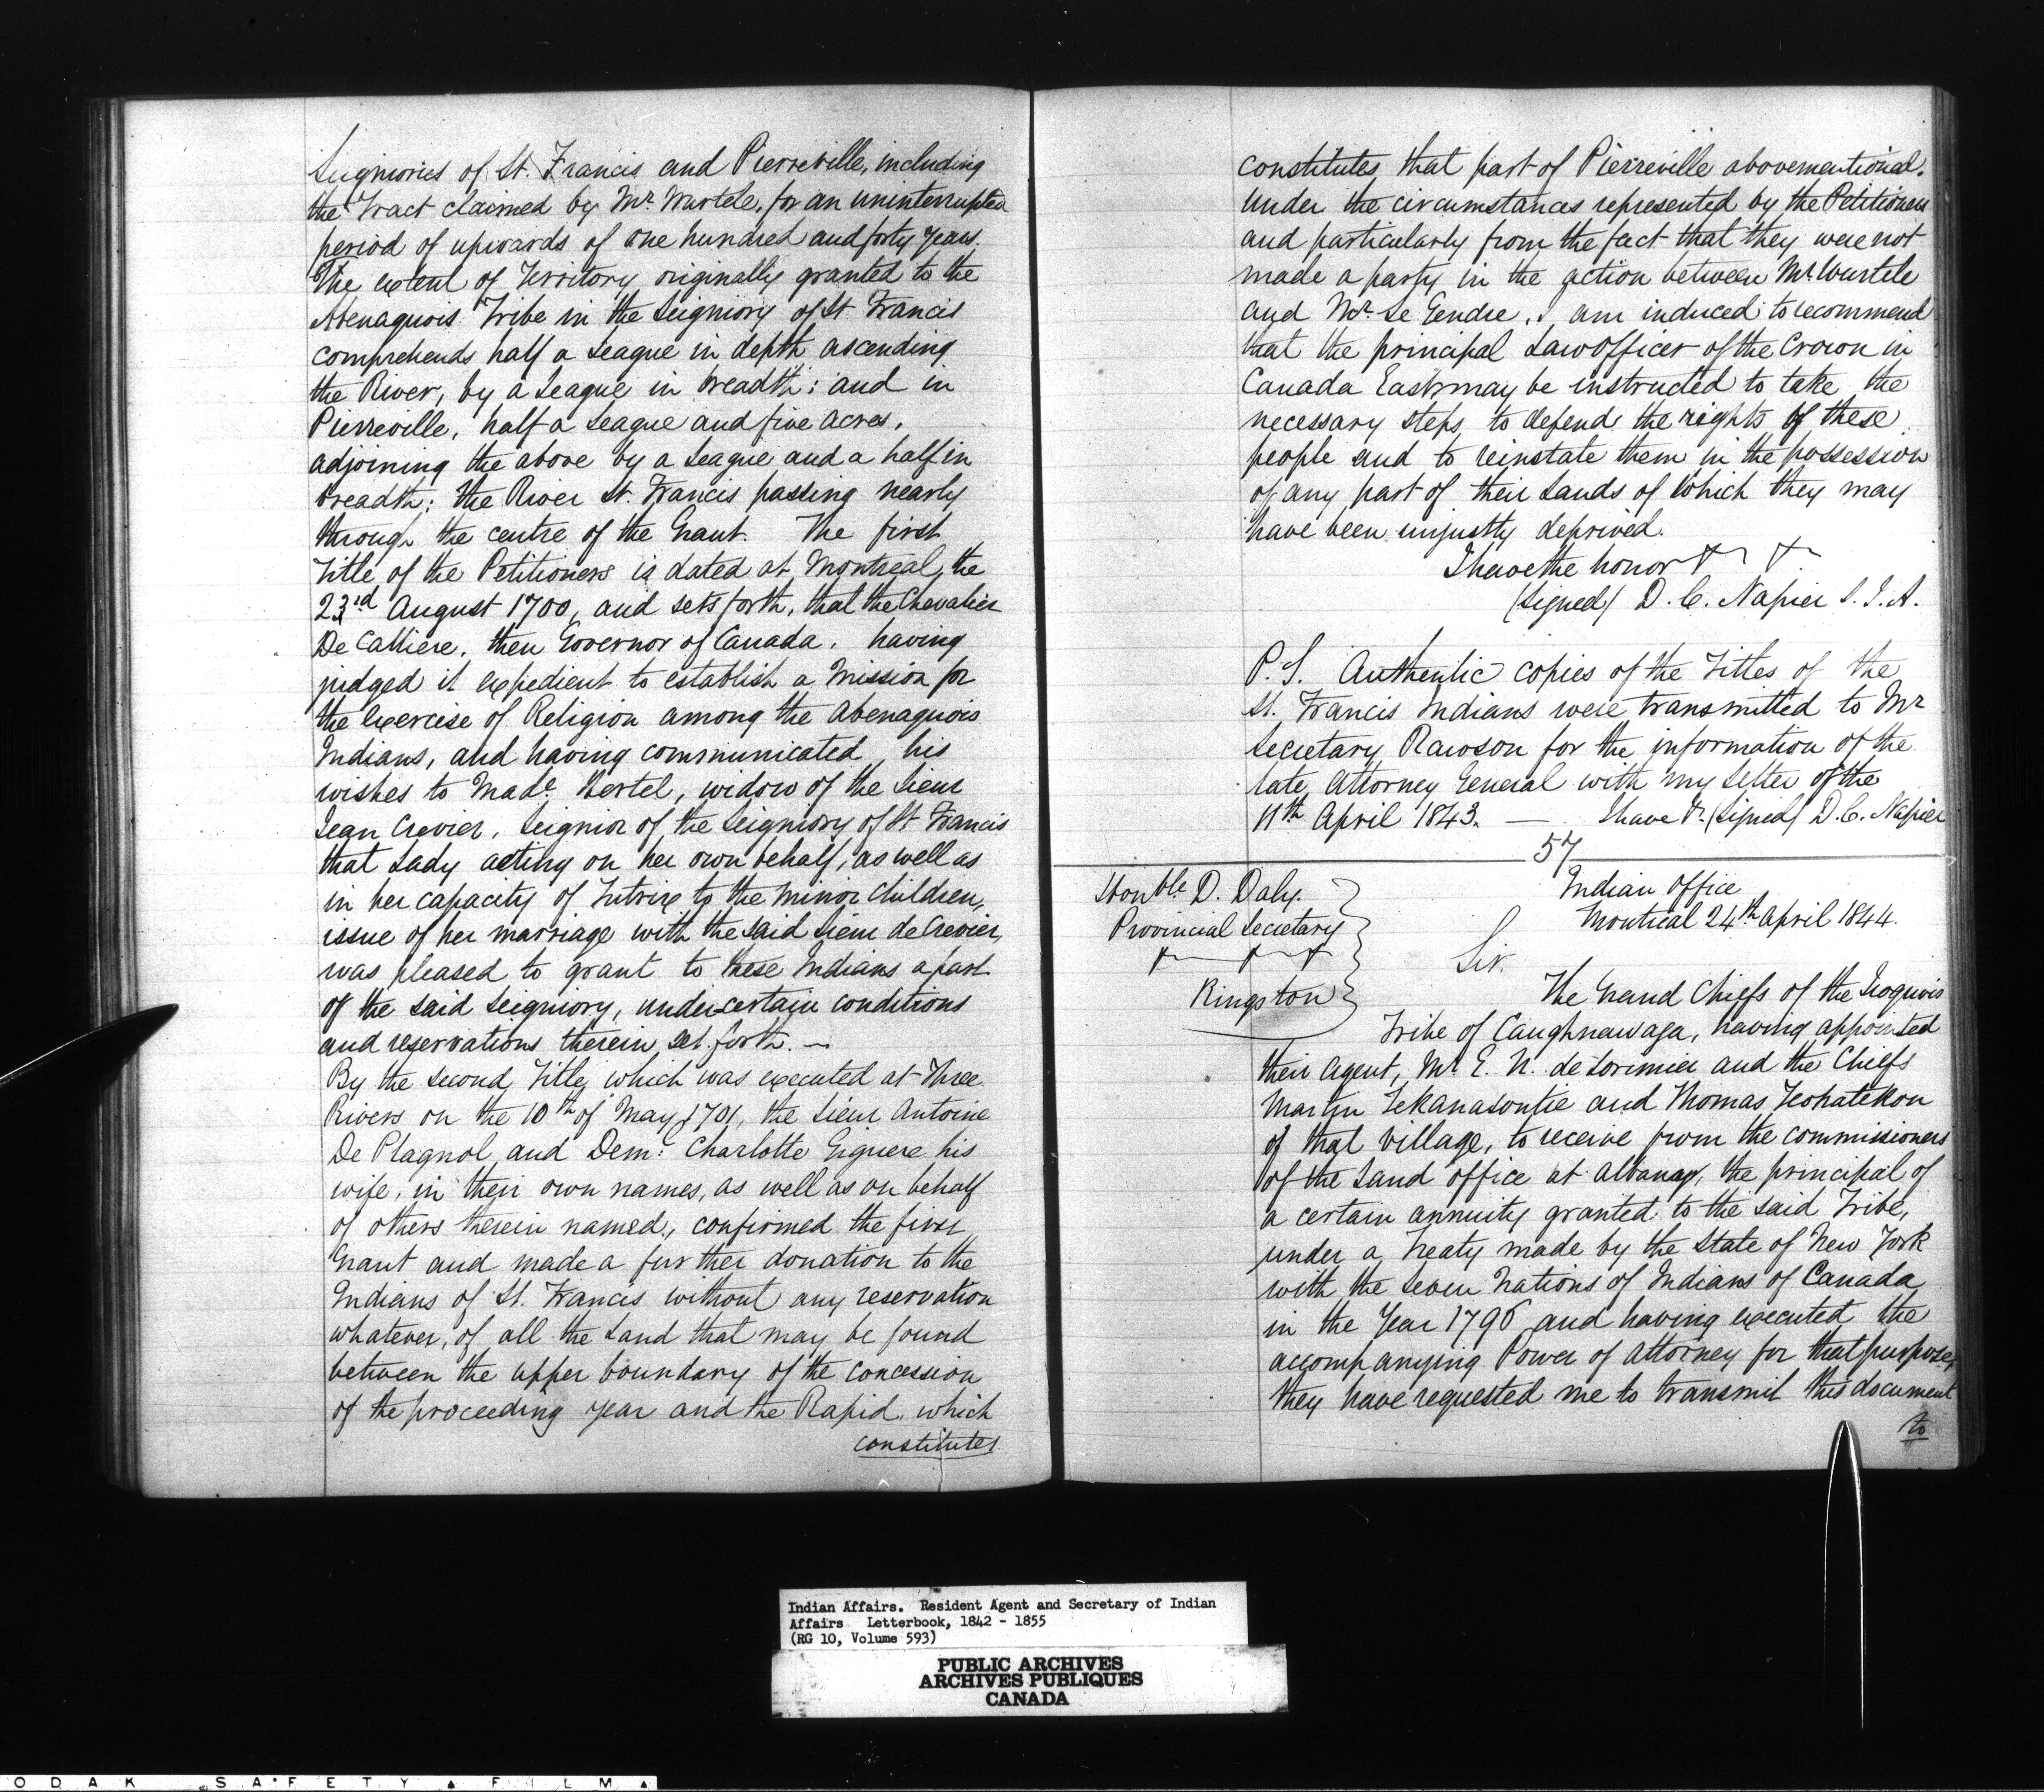 Seigniories of St. Francis and Pierreville, including
the Tract claimed by Mr. Wurtele, for an uninterrupted
period of upwards of one hundred and forty years.
The extent of Territory originally granted to the
Abenaquois Tribe in the Seigniory of St Francis
comprehends half a League in depth ascending
the River, by a League in breadth; and in
Pierreville, half a League and five acres,
adjoining the above by a League and a half in
breadth; the River St. Francis passing nearly
through the centre of the Grant. The first
Title of the Petitioners is dated at Montreal, the
23rd August 1700, and sets forth, that the Chevalier
De Calliere, then Governor of Canada, having
judged it expedient to establish a Mission for
the exercise of Religion among the Abenaquois
Indians, and having communicated his
wishes to Made. Hertel, widow of the Sieur
Jean Crevier, Seignior of the Seigniory of St Francis
that Lady acting on her own behalf, as well as
in her capacity of Tutrix to the minor children,
issue of her marriage with the said Sieur de Crevier,
was pleased to grant to these Indians a part
of the said Seigniory, under certain conditions
and reservations therein set forth. —
By the second Title, which was executed at Three
Rivers on the 10th of May 1701, the Sieur Antoine
De Plagnol and Dem: Charlotte Giguere his
wife, in their own names, as well as on behalf
of others therein named, confirmed the first
Grant and made a further donation to the
Indians of St. Francis without any reservation
whatever, of all the Land that may be found
between the upper boundary of the concession
of the proceeding year and the Rapid, which
constitutes
constitutes that part of Pierreville abovementioned.
Under the circumstances represented by the Petitioners
and particularly from the fact that they were not
made a party in the action between Mr. Wurtele
and Mr. Le Gendre, I am induced to recommend
that the principal Law Officer of the Crown in
Canada East may be instructed to take the
necessary steps to defend the rights of these
people and to reinstate them in the possession
of any part of their Lands of which they may
have been unjustly deprived.
I have the honor
(Signed) D. C. Napier S. I. A.
P. S. Authentic copies of the Titles of the
St. Francis Indians were transmitted to Mr
Secretary Rawson for the information of the
late Attorney General with my Letter of the
11th April 1843. — I have &. (Signed) D. C. Napier
57
Honble. D. Daly.
Provincial Secretary
Kingston
Indian Office
Montreal 24th April 1844.
Sir.
The Grand Chiefs of the Iroquois
Tribe of Caughnawaga, having appointed
their Agent, Mr. E. N. de Lorimier and the Chiefs
Martin Tekanasontie and Thomas Teohatekon
of that Village, to receive from the commissioners
of the Land Office at Albany, the principal of
a certain annuity granted to the said Tribe,
under a Treaty made by the State of New York
with the Seven Nations of Indians of Canada
in the Year 1796 and having executed the
accompanying Power of Attorney for that purpose,
they have requested me to transmit this document
to
Indian Affairs. Resident Agent and Secretary of Indian
Affairs Letterbook, 1842 - 1855
(RG 10, Volume 593)
PUBLIC ARCHIVES
ARCHIVES PUBLIQUES
CANADA
ODAK SAFETY FILM